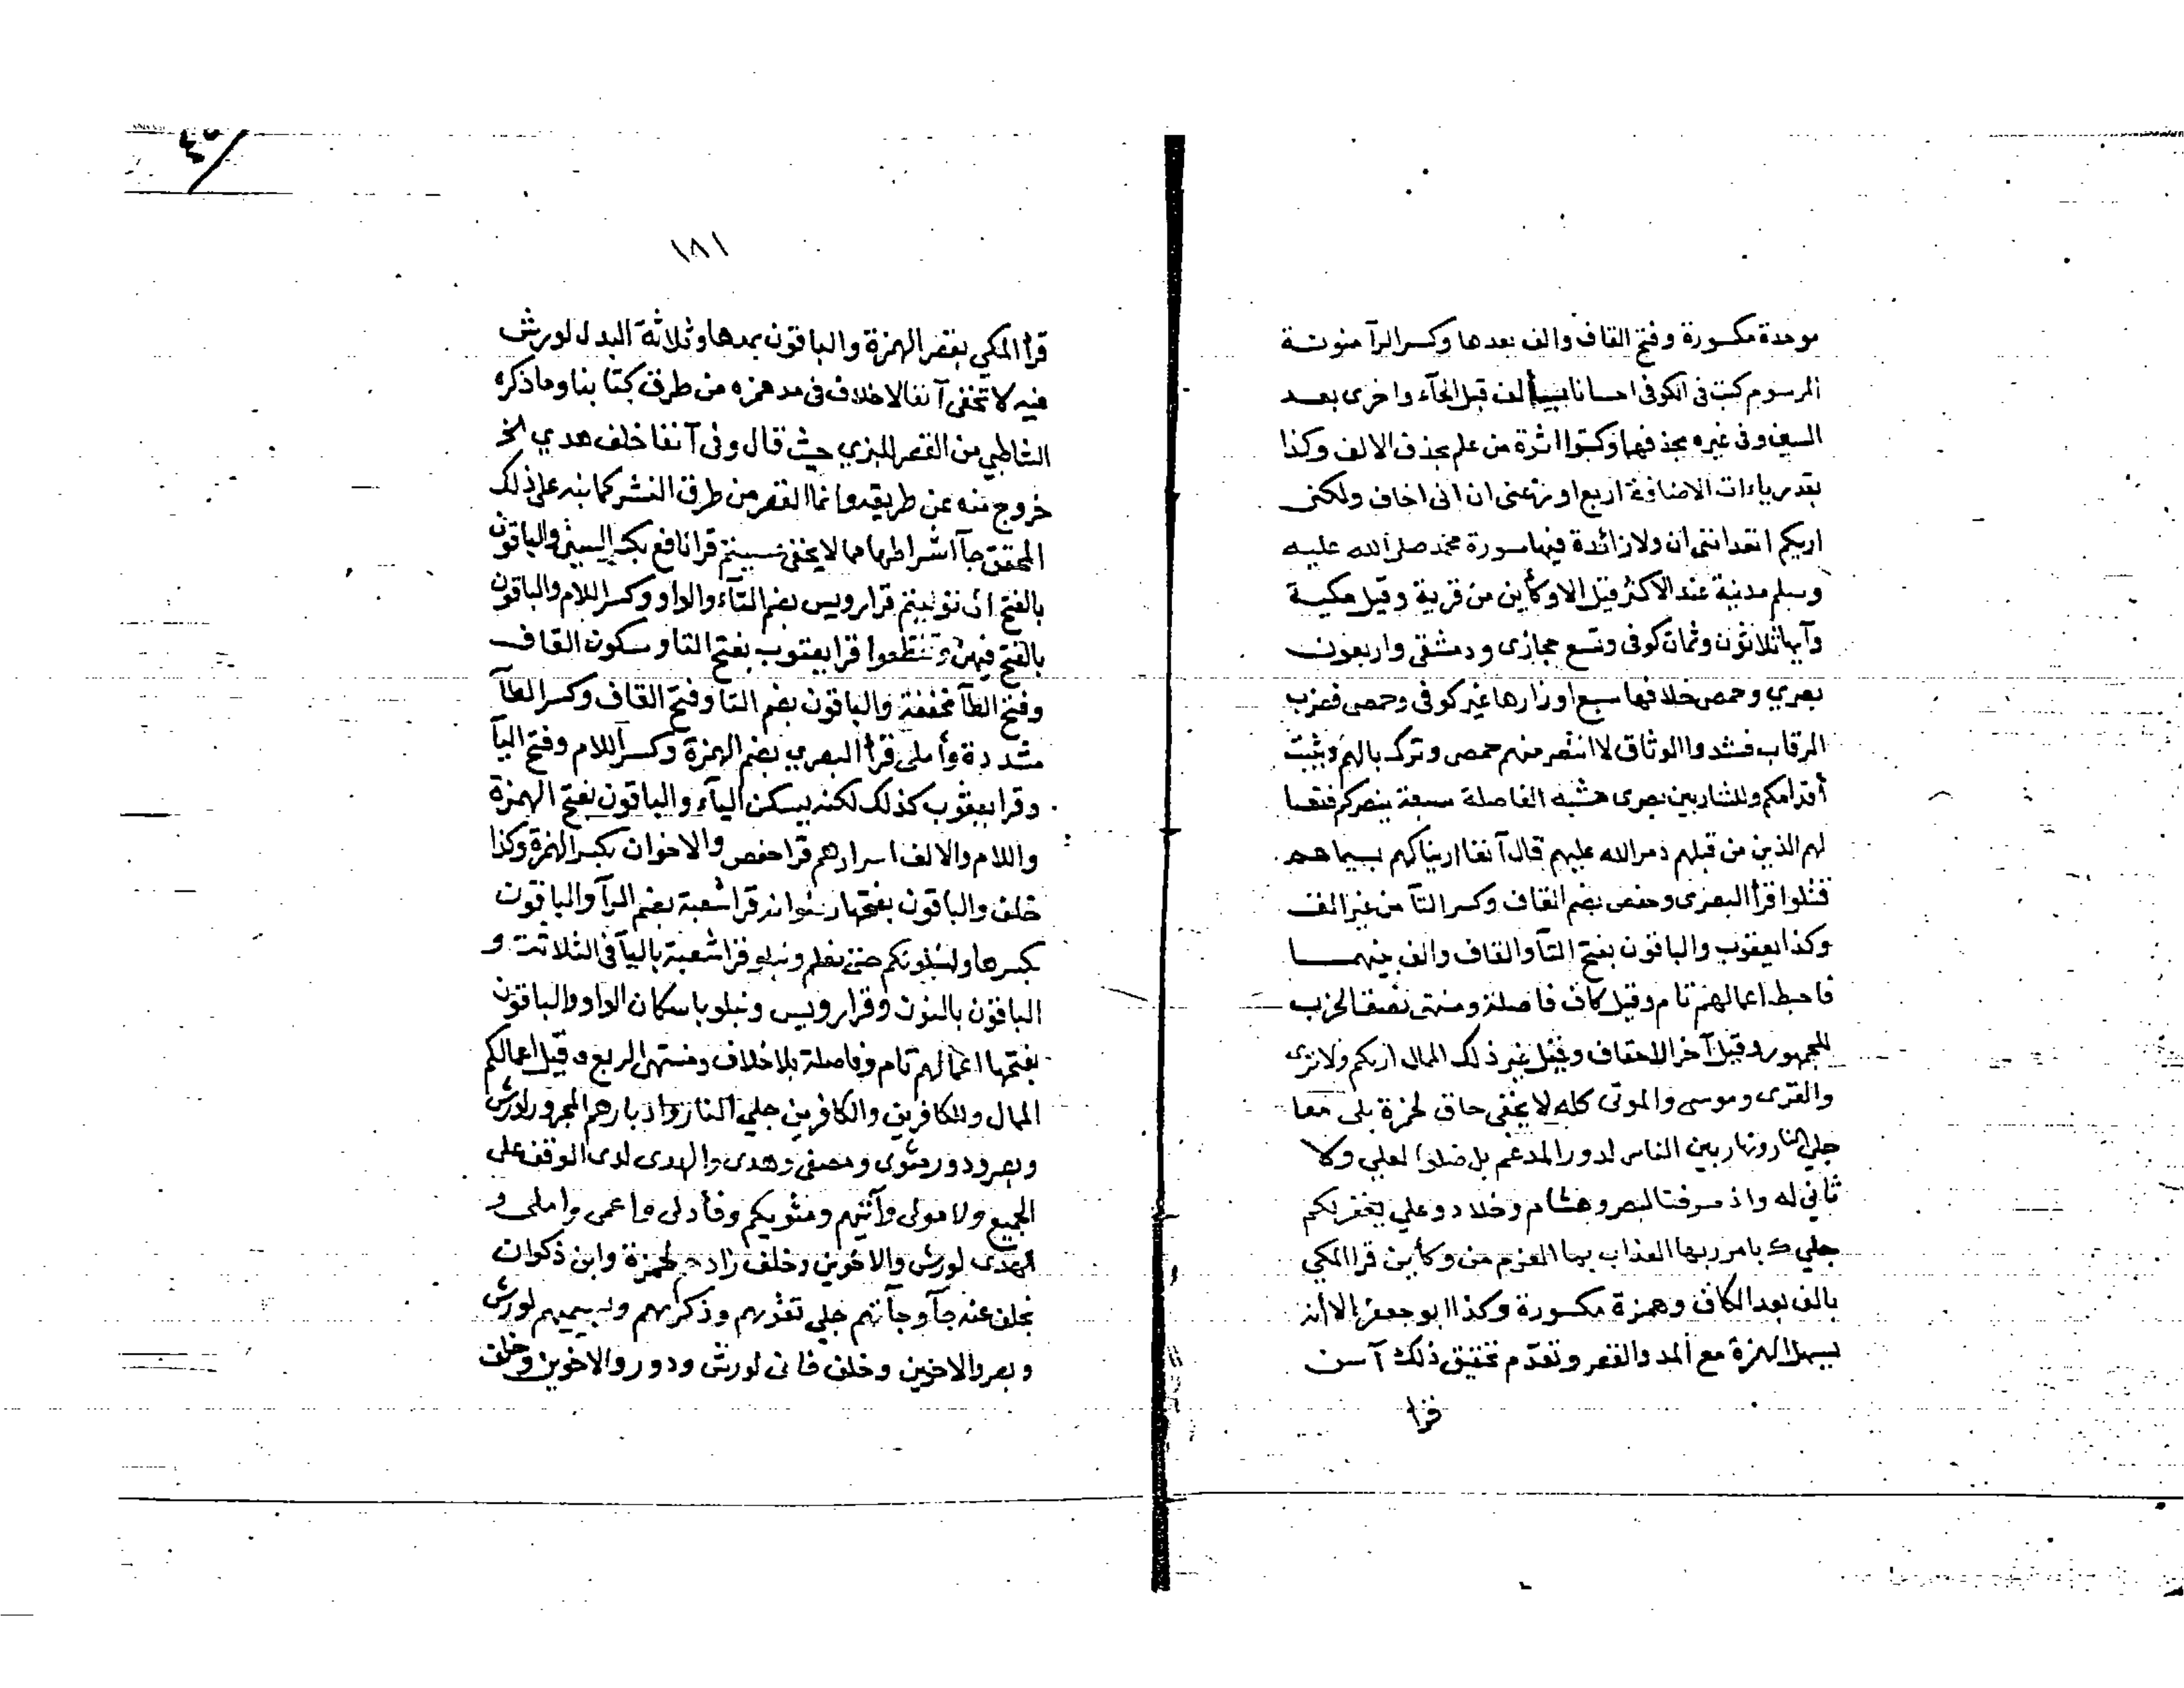 موحدة مكسورة وفتح القاف والف بعدها وكسر الرآ منونة
المرسوم كتب في الكوفي احسانا بيبا ألف قبل الحآء واخرى بعد
السين وفى غيره بحذفهما وكتبوا اثرة من علم بحذف الالف وكذا
بقدر ياءات الاضافة اربع اوزعنى ان انى اخاف ولكنى
اريكم اتعداننى ان ولا زائدة فيها سورة محمد صلى الله عليه
وسلم مدنية عند الاكثر قيل الا وكأين من قرية وقيل مكية
وآيها ثلاثون وثمان كوفى وتسع حجازى ودمشقى واربعون
بصري وحمصى خلافها سبع اوزارها غير كوفى وحمصى فضرب
الرقاب فشدوا الوثاق لا انتصر منهم حمصى وترك بالهم ويثبت
أقدامكم وللشاربين بصرى مشبه الفاصلة سبعة ينصركم فتعسا
لهم الذين من قبلهم دمر الله عليهم قال آنفا اريناكهم بسيماهم
قتلوا قرأ البصرى وحفص بضم القاف وكسر التآ من غير الف
وكذا يعقوب والباقون بفتح التآ والقاف والف بينهما
فاحبط اعمالهم تام وقيل كاف فاصلة ومنتهى نصف الحزب
للجمهور وقيل آخر الاحقاف وقيل غير ذلك الممال اريكم ولا ترى
والقرى وموسى والموتى كله لا يخفى حاق لحمزة بلى معا
جلي النار ونهار بين الناس لدور المدغم بل ضلوا لعلي ولا
ثاني له واذ صرفنا لبصر وهشام وخلاد وعلي يغفر لكم
جلي ك بامر ربها العذاب بما العزم من وكأين قرا المكي
بالف بعد الكاف وهمزة مكسورة وكذا ابو جعفر الا أنه
يسهل الهمزة مع المد والقصر وتقدم تحقيق ذلك آسن
قرا
١٨١
قرأ المكي بقصر الهمزة والباقون بمدها وثلاثة البدل لورش
فيه لا تخفى آنفا لا خلاف فى مد همزه من طرق كتابنا وما ذكره
الشاطبي من القصر للبزي حيث قال وفى آنفا خلف هدي الخ
خروج منه عن طريقه وانما القصر من طرق النشر كما نبه على ذلك
المحقق جآ اشراطها مما لا يخفى عسيتم قرا نافع بكسر السين والباقون
بالفتح ان توليتم قرا رويس بضم التآء والواو وكسر اللام والباقون
بالفتح فيهن وتقطعوا قرا يعقوب بفتح التا وسكون القاف
وفتح الطآ مخففة والباقون بضم التا وفتح القاف وكسر الطآ
مشددة وأملى قرأ البصري بضم الهمزة وكسر اللام وفتح اليآ
وقرا يعقوب كذلك لكنه يسكن اليآء والباقون بفتح الهمزة
واللام والالف اسرارهم قرا حفص والاخوان بكسر الهمزة وكذا
خلف والباقون بفتحها رضوانه قرا شعبة بضم الرآ والباقون
بكسرها ولنبلونكم حتى نعلم ونبلو قرا شعبة باليآ فى الثلاثة و
الباقون بالنون وقرا رويس ونبلو باسكان الواو والباقون
بفتحها اعمالهم تام وفاصلة بلا خلاف ومنتهى الربع وقيل اعمالكم
الممال وللكافرين والكافرين جلي النار وادبارهم المجرور لورش
وبصر ودور مثوى ومصفى وهدى والهدى لدى الوقف على
الجميع ولا مولى وآتيهم ومثويكم وفأولى واعمى واملى و
الهدى لورش والاخوين وخلف زادهم لحمزة وابن ذكوان
بخلف عنه جآ وجآتهم جلي تقويهم وذكراهم وبسيميهم لورش
وبصر والاخوين وخلف فانى لورش ودور والاخوين وخلف